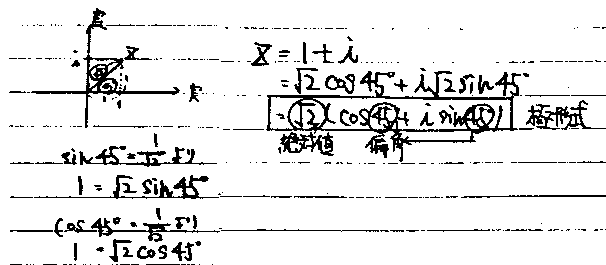 i
Z
1
実
Z = 1 + i
= √2 cos 45° + i √2 sin 45°
= √2 ( cos 45 + i sin 45 ) 極形式
絶対値 偏角
sin 45° = 1/√2 より
1 = √2 sin 45°
cos 45° = 1/√2 より
1 = √2 cos 45°